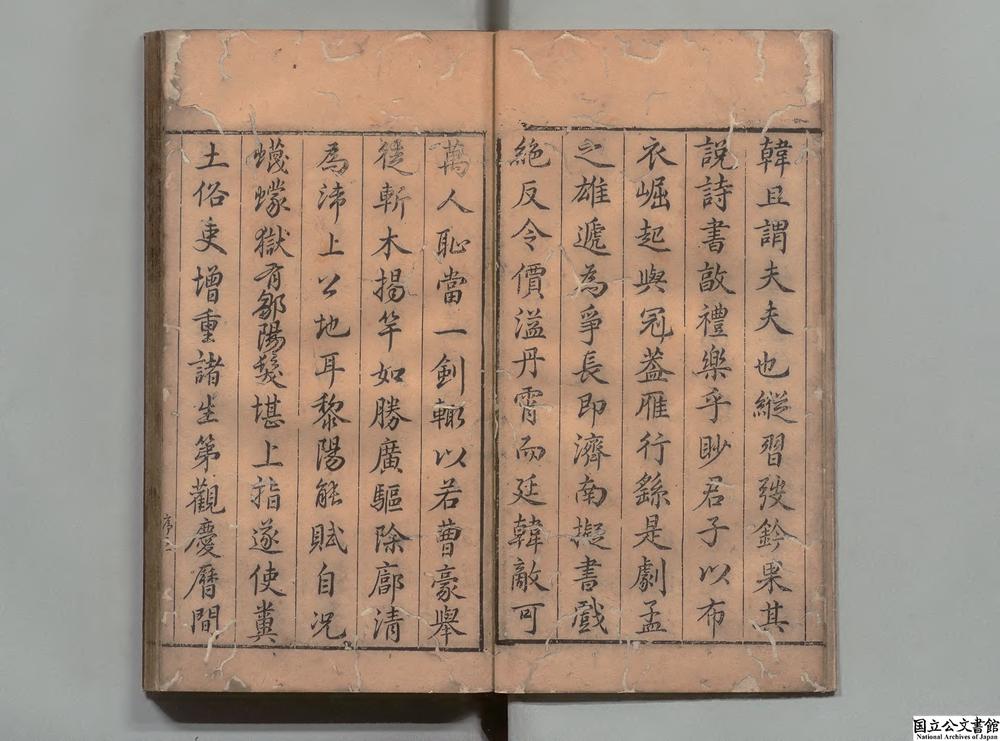 韓且謂夫夫也縱習彀鈐果其
說詩書敔禮樂乎眇君子以布
衣崛起與冠葢雁行繇是劇孟
之雄遞為爭長即濟南擬書戲
絶反令價溢丹霄而廷韓敵可
萬人恥當一劍輙以若曹豪舉
從斬木揭竿如勝廣驅除廓清
為沛上公地耳黎陽能賦自況
蠛蠓獄有鄒陽髮堪上指遂使糞
土俗吏增重諸生第觀慶曆間
序二
国立公文書館
National Archives of Japan